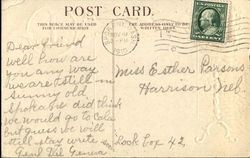 POST CARD.
THIS SPACE MAY BE USED FOR COMMUNICATION
THE ADDRESS ONLY TO BE WRITTEN HERE
Dear friend
Well how are
you any way
we are still in
sunny old
Spoke. he did think
we would go to Cala
but guess we will
still stay write soon
Miss Esther Parsons
Harrison Neb.
Lock Box 42,